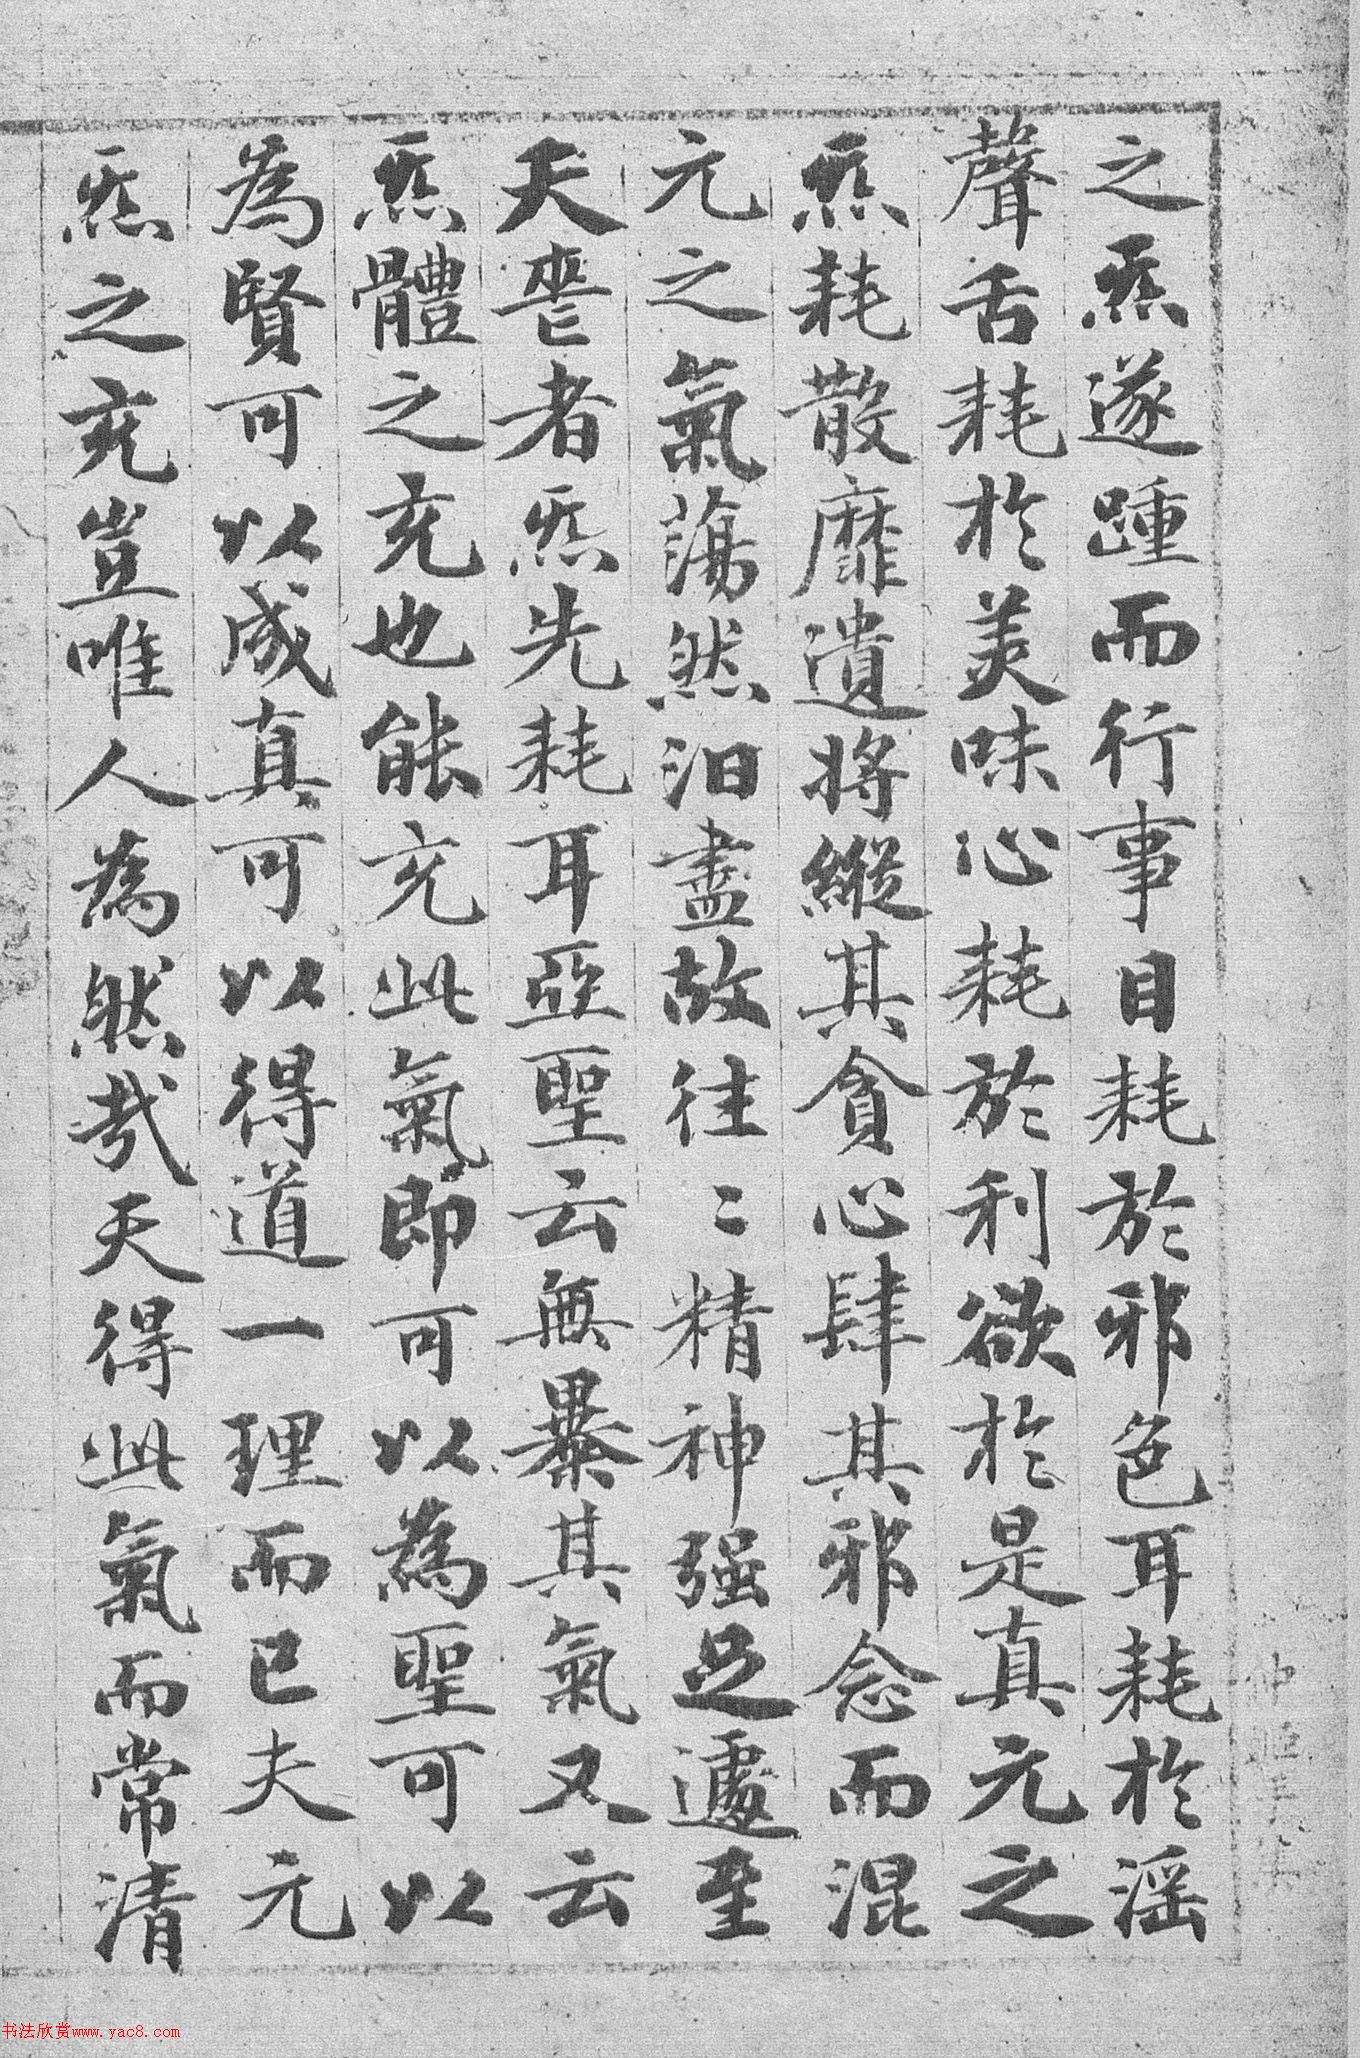 之炁遂踵而行事目耗於邪色耳耗於滛
聲舌耗於美味心耗於利欲於是真元之
炁耗散靡遺將縱其貪心肆其邪念而混
元之氣蕩然汩盡故往〻精神强足遽至
夭喪者炁先耗耳亞聖云無暴其氣又云
炁體之充也能充此氣即可以為聖可以
為賢可以成真可以得道一理而已夫元
炁之充豈唯人為然哉天得此氣而常清
书法欣赏www.yac8.com